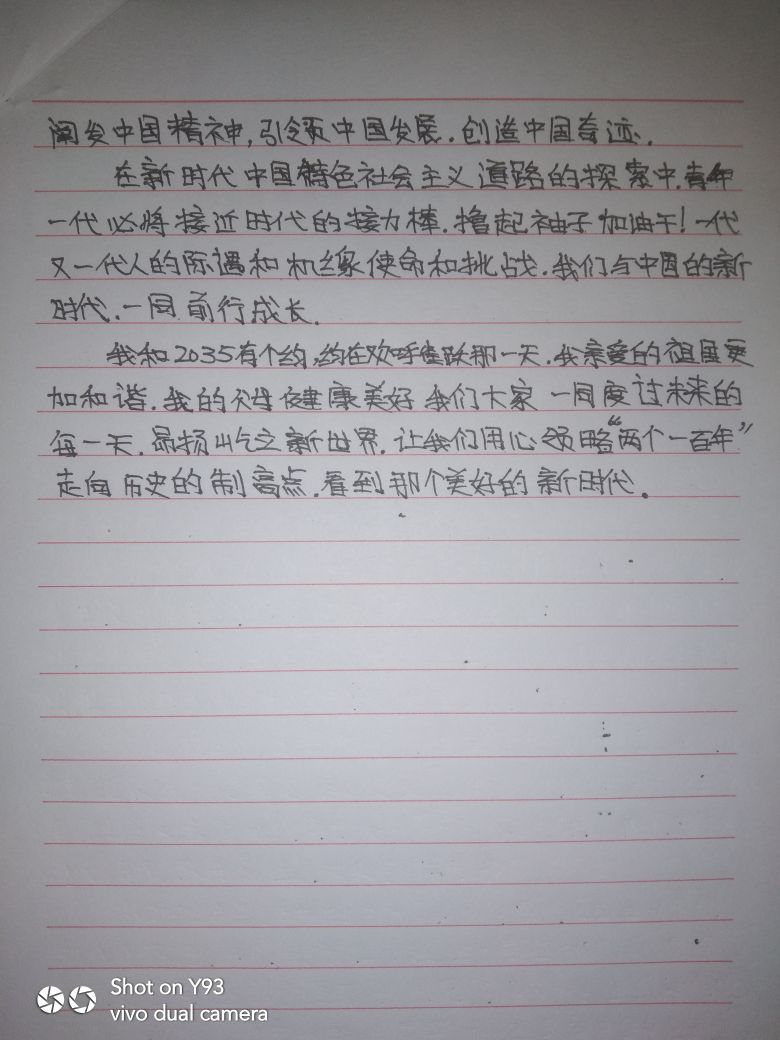 阐发中国精神,引领中国发展.创造中国奇迹.
在新时代中国特色社会主义道路的探索中.青年
一代必将接近时代的接力棒.撸起袖子加油干!一代
又一代人的际遇和机缘使命和挑战.我们与中国的新
时代.一同前行成长.
我和2035有个约,约在欢呼雀跃那一天.我亲爱的祖国更
加和谐.我的父母健康美好我们大家一同度过未来的
每一天.昂扬屹立新世界.让我们用心领略“两个一百年”
走向历史的制高点.看到那个美好的新时代。
Shot on Y93
vivo dual camera